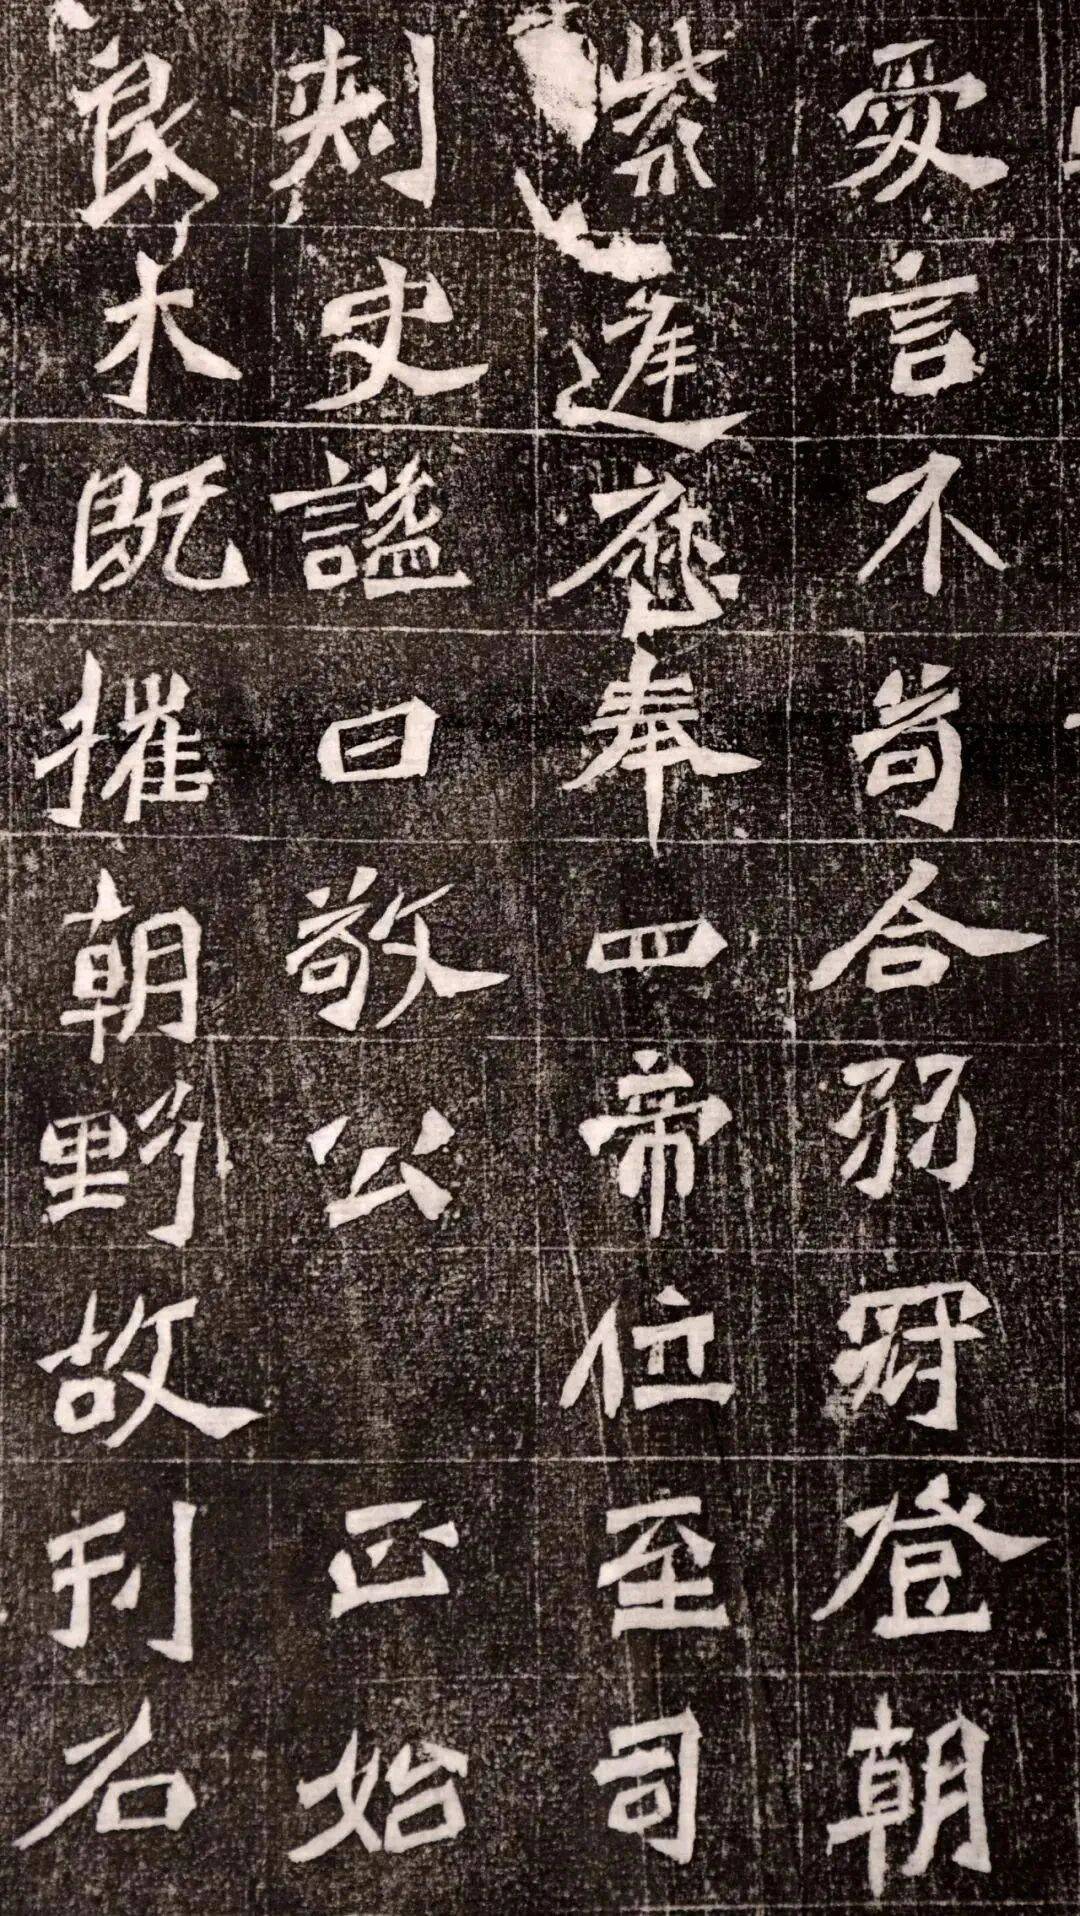 爰言不苟合弱冠登朝
紫遲歷奉四帝位至司
刺史謚曰敬公　正始
良木既摧朝野故刊石